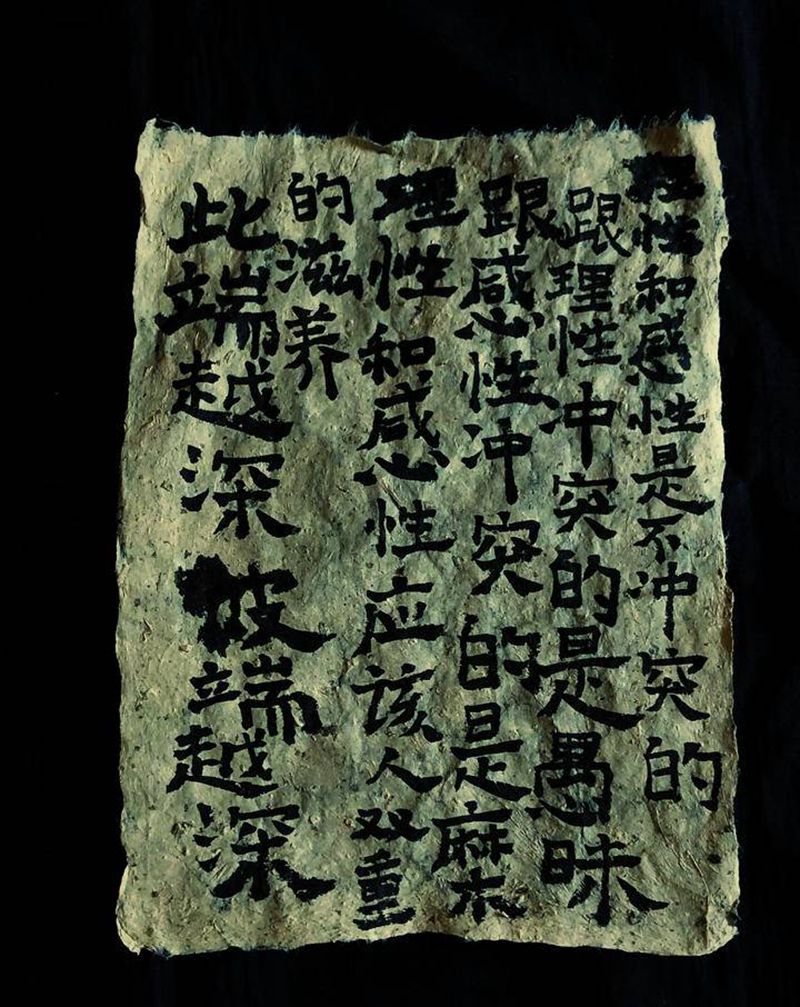 理性和感性是不冲突的
跟理性冲突的是愚昧
跟感性冲突的是麻木
理性和感性应该人双重
的滋养
此端越深彼端越深